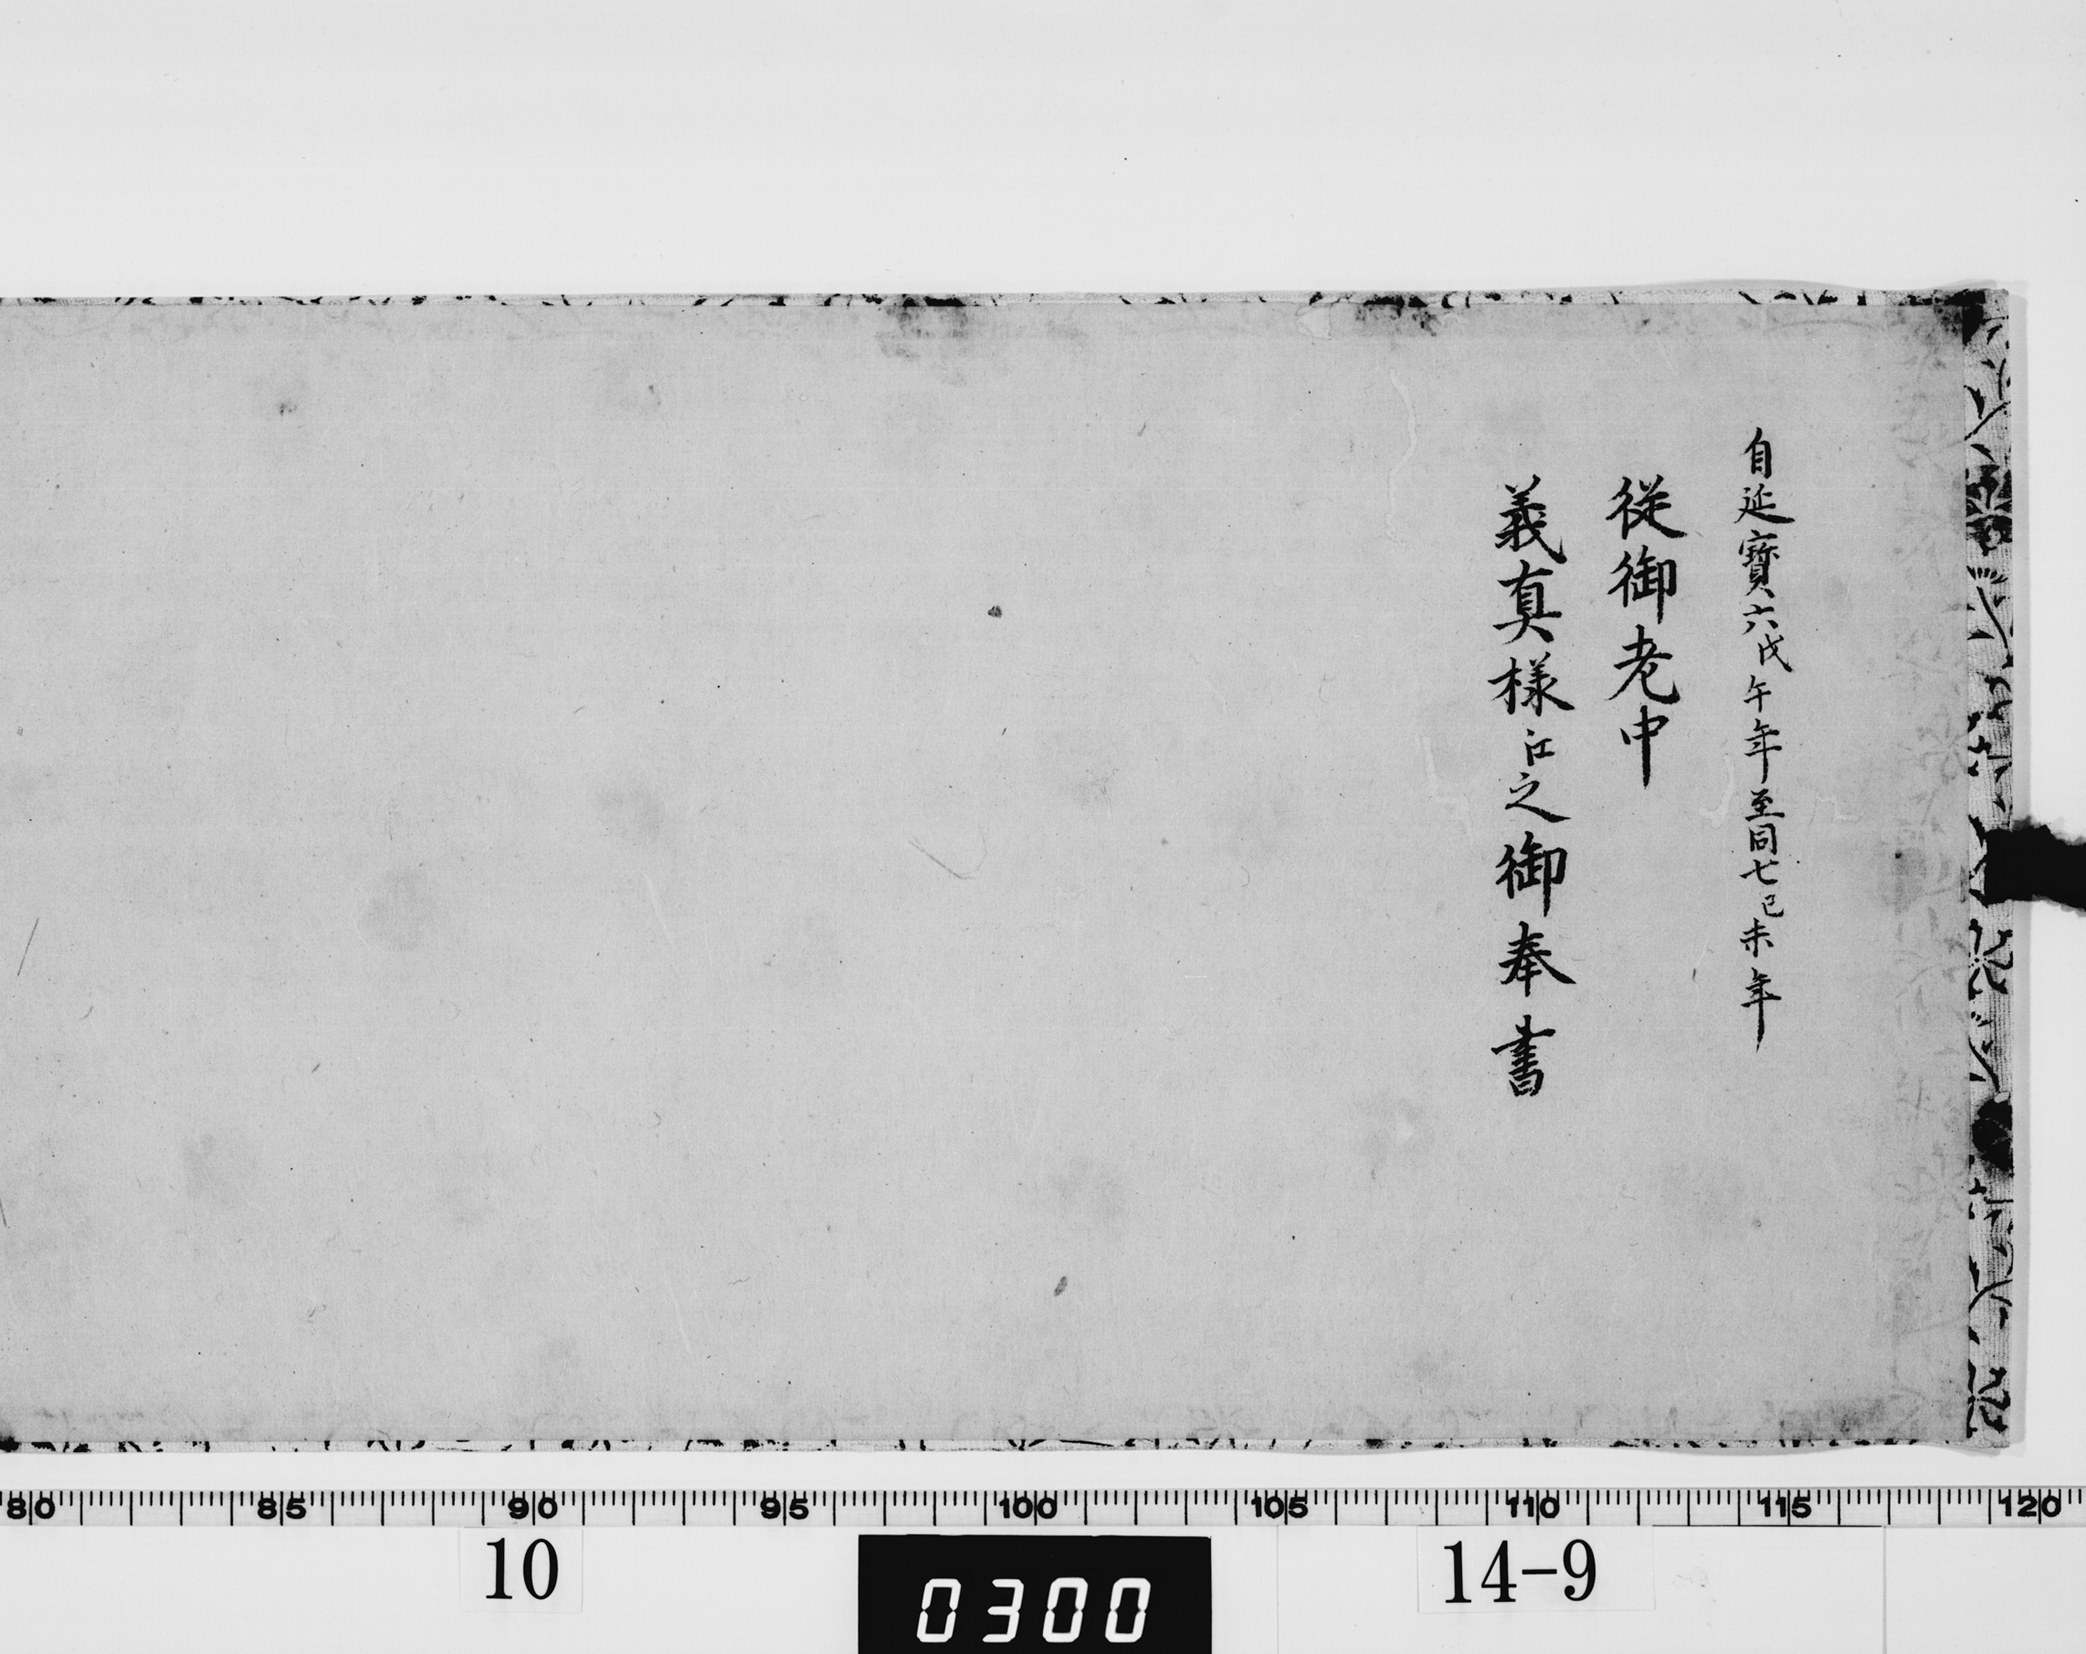 自延寳六戊午年至同七己未年
従御老中
義真様江之御奉書
80 85 90 95 100 105 110 115 120
10
0300
14-9